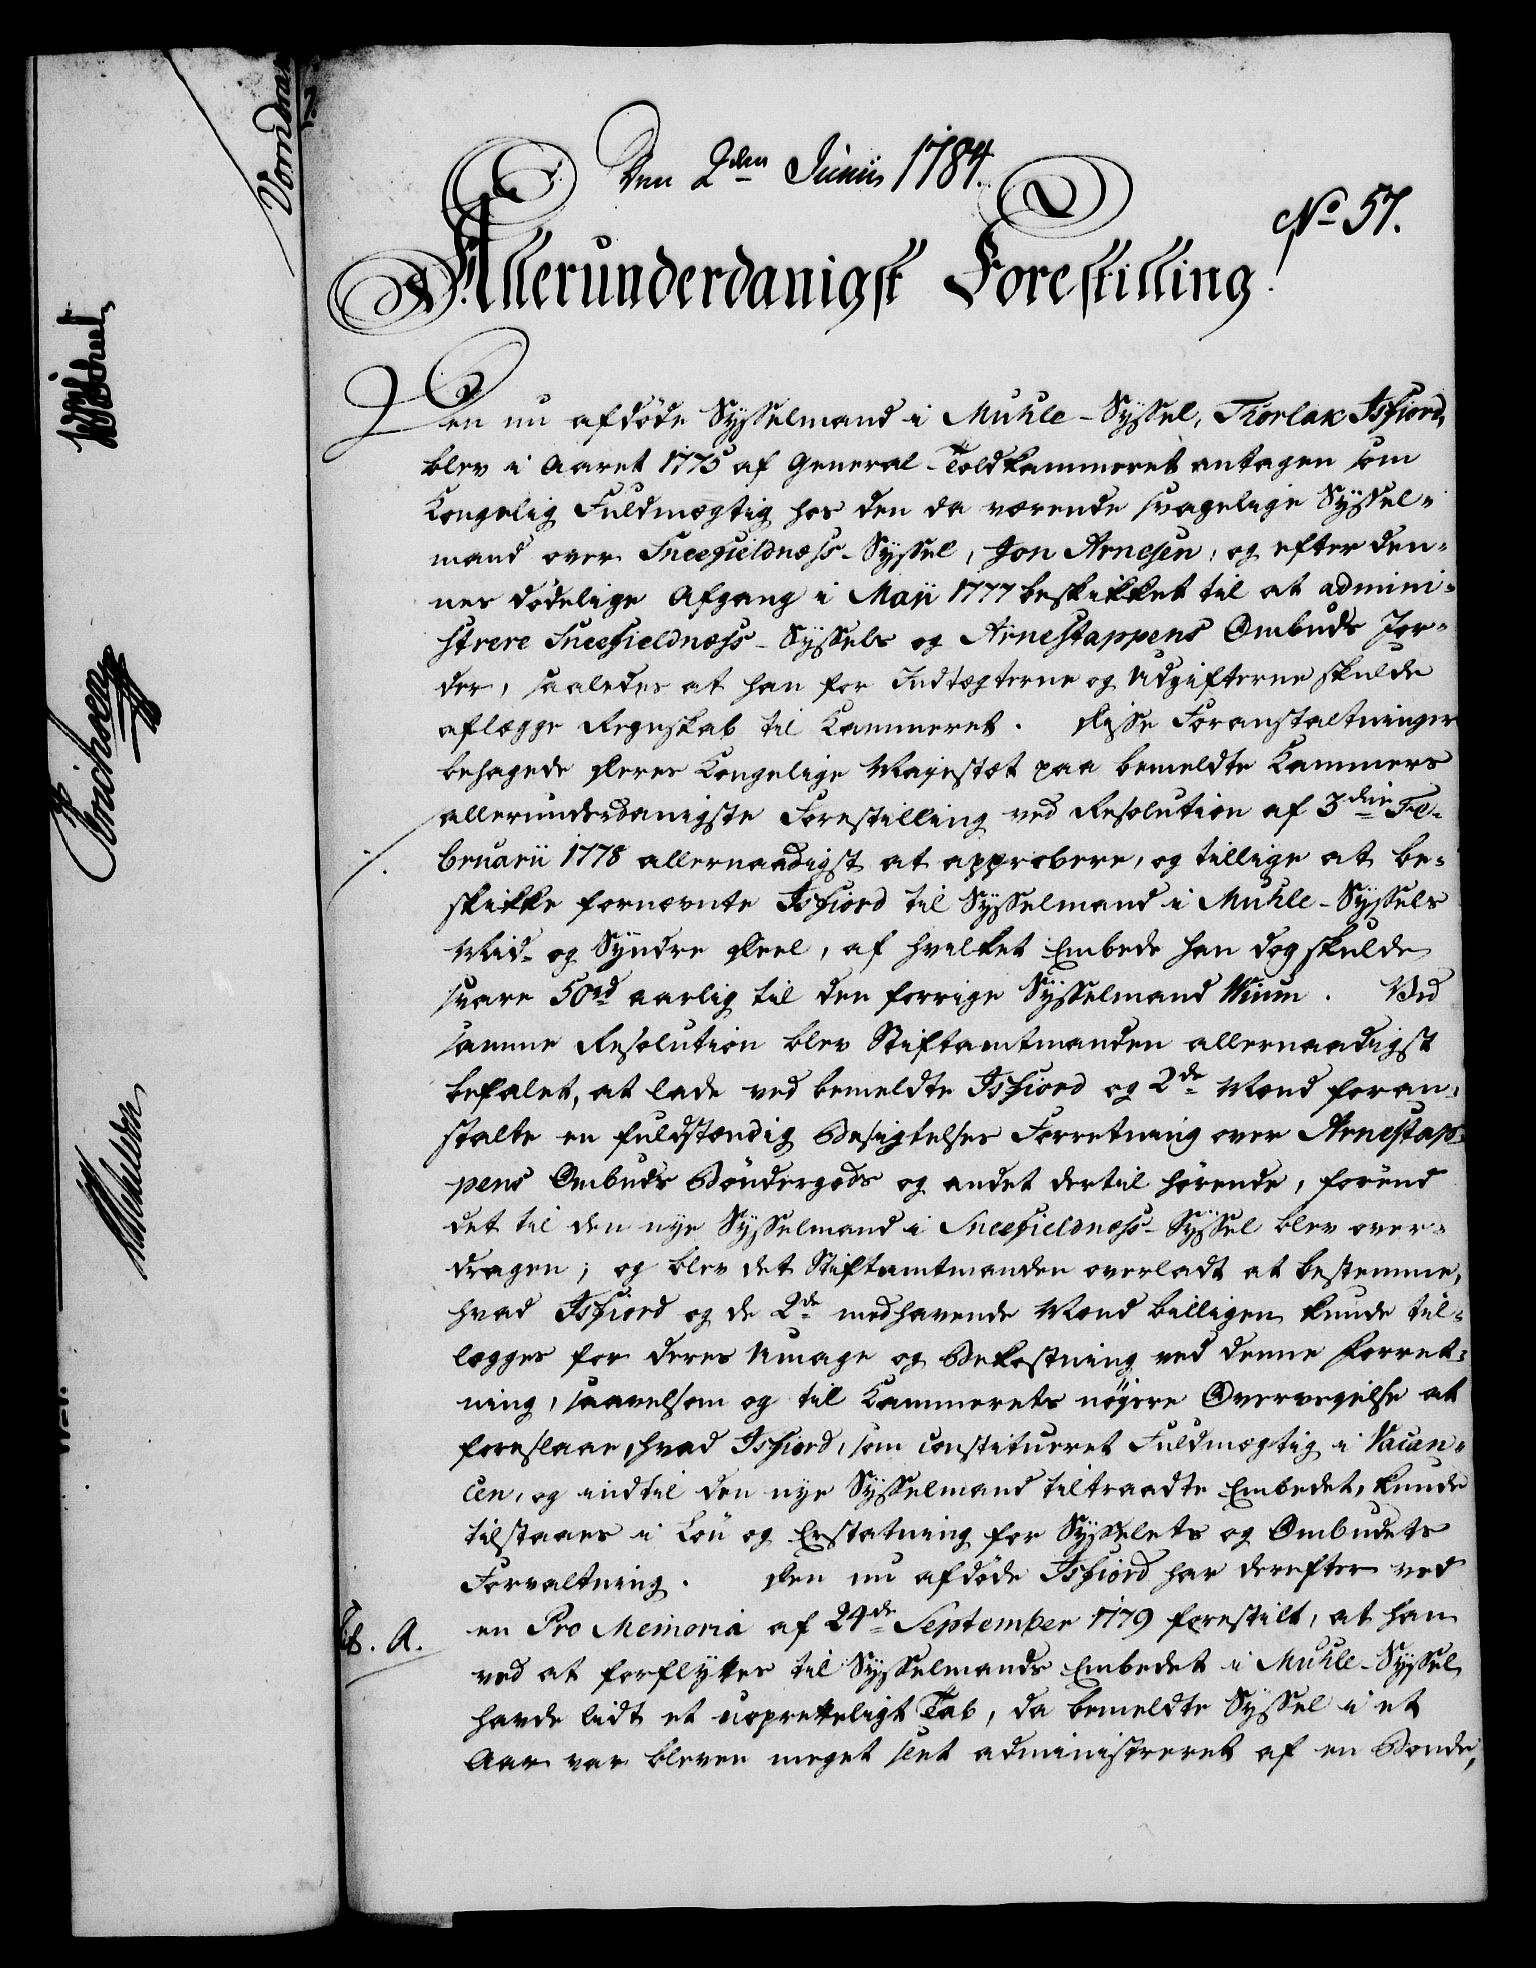 Den 2den Junii 1784.
No 57.
Allerunderdanigst Forestilling!
Den nu afdøde Sysselmand i Muhle-Syssel, Thorlak Isfiord,
blev i Aaret 1775 af General-Toldkammeret antagen som
Kongelig Fuldmægtig hos den da værende svagelige Syssel-
mand over Sneefieldness-Syssel, Jon Arnesen, og efter den-
nes dødelige Afgang i Maji 1777 beskikket til at admini-
strere Sneefieldness-Syssels og Arnestappens Ombuds Jor-
der, saaledes at han for Indtægterne og Udgifterne skulde
aflægge Regnskab til Kammeret. Disse Foranstaltninger
behagede Deres Kongelige Majestæt paa bemeldte Kammers
allerunderdanigste Forestilling ved Resolution af 3die Fe-
bruarii 1778 allernaadigst at approbere, og tillige at be-
skikke fornævnte Isfiord til Sysselmand i Muhle-Syssels
Mid- og Syndre Deel, af hvilket Embede han dog skulde
svare 50rd aarlig til den forrige Sysselmand Wium. Ved
samme Resolution blev Stiftamtmanden allernaadigst
befalet, at lade ved bemeldte Isfiord og 2de Mænd foran-
stalte en fuldstændig Besigtelses Forretning over Arnestap-
pens Ombuds Bøndergods og andet dertil hørende, forend
det til den nye Sysselmand i Sneefieldness-Syssel blev over-
dragen; og blev det Stiftamtmanden overladt at bestemme,
hvad Isfiord og de 2de medhavende Mænd billigen kunde til-
lægges for deres Umage og Bekostning ved denne Forret-
ning, saavelsom og til Kammerets nøjere Overvejelse at
foreslaae, hvad Isfiord, som constitueret Fuldmægtig i Vacan-
cen, og indtil den nye Sysselmand tiltraadte Embedet, kunde
tilstaaes i Løn og Erstatning for Sysselets og Ombudets
Forvaltning. Den nu afdøde Isfiord har derefter ved
Lit. A. en Pro Memoria af 24de September 1779 forestilt, at han
ved at forflyttes til Sysselmands Embedet i Muhle-Syssel
havde lidt et uopretteligt Tab, da bemeldte Syssel i et
Aar var bleven meget slet administreret af en Bonde,
Erichsen